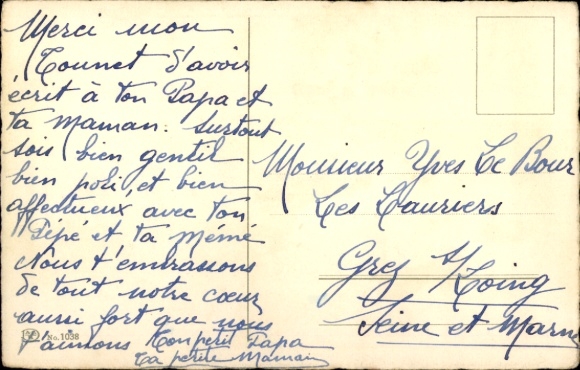 Merci mon
Tounet d'avoir
écrit à ton Papa et
ta Maman. Surtout
sois bien gentil
bien poli, et bien
affectueux avec ton
Pépé et ta mémé
Nous t'embrassons
de tout notre cœur
aussi fort que nous
t'aimons Ton petit Papa
Ta petite Maman
Monsieur Yves Le Bour
Les Lauriers
Grez s/ Loing
Seine et Marne
No. 1038